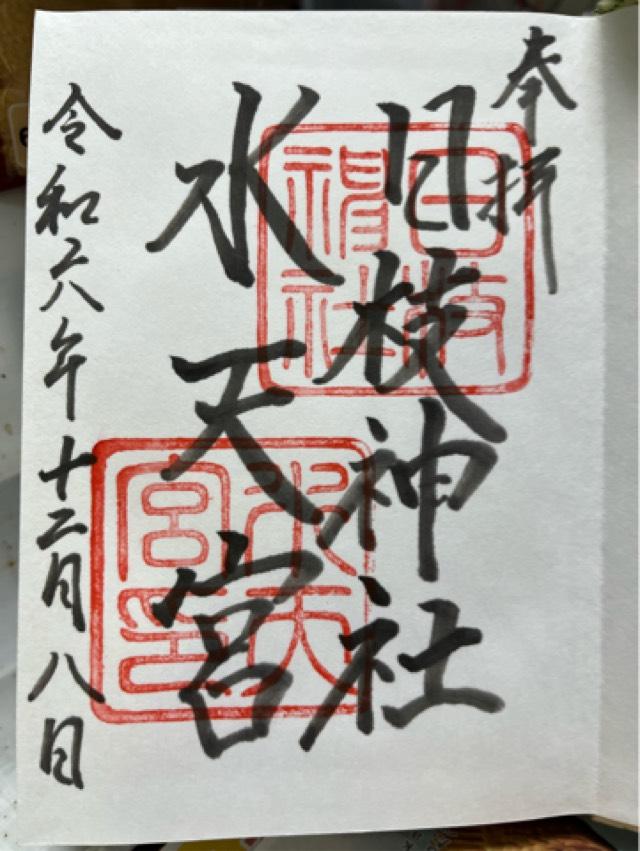 奉拝
日枝神社
日枝神社
水天宮
水天宮印
令和六年十二月八日